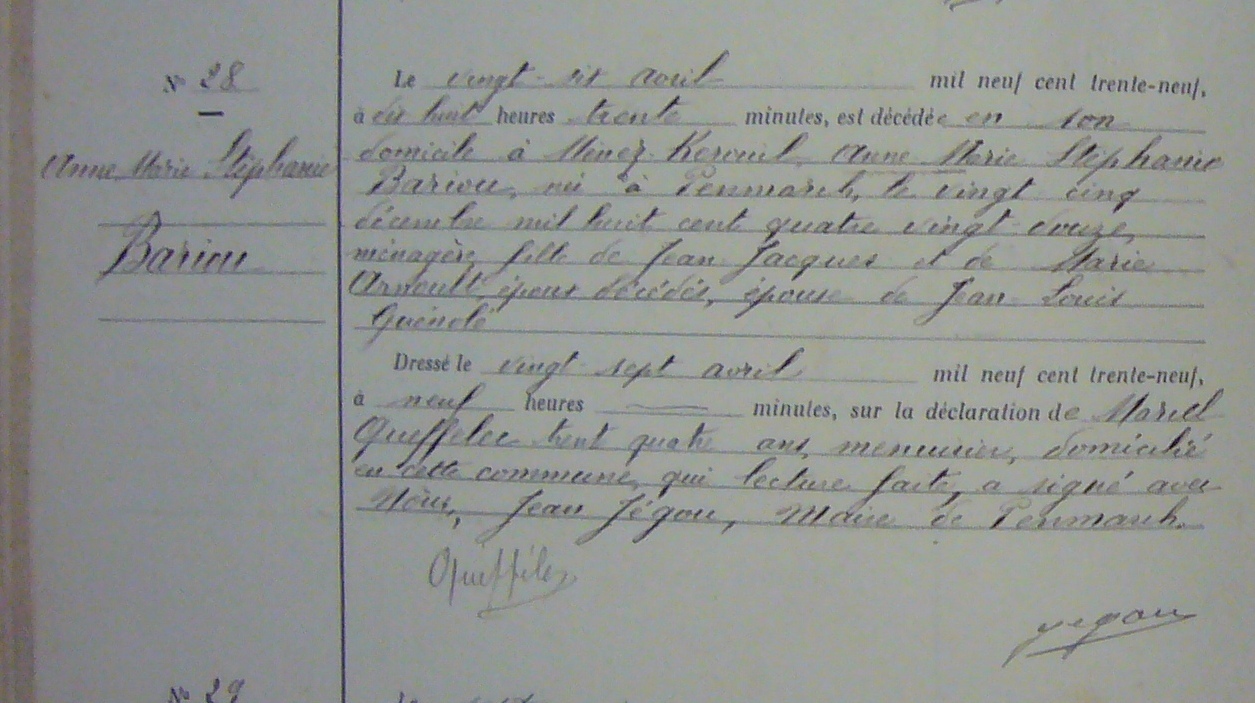 N° 28
Anne Marie Stéphanie
Bariou
Le vingt-six avril mil neuf cent trente-neuf,
à dix huit heures trente minutes, est décédée en son
domicile à Ménez-Kerouil, Anne Marie Stéphanie
Bariou, née à Penmarch, le vingt cinq
décembre mil huit cent quatre vingt-douze,
ménagère, fille de Jean Jacques et de Marie
Arnoult, époux décédés, épouse de Jean-Louis
Guénolé
Dressé le vingt-sept avril mil neuf cent trente-neuf,
à neuf heures — minutes, sur la déclaration de Marcel
Queffelec trent quatre ans, menuisier, domicilié
en cette commune, qui lecture faite, a signé avec
Nous, Jean Jégou, Maire de Penmarch.
Queffélec
Jegou
N° 29